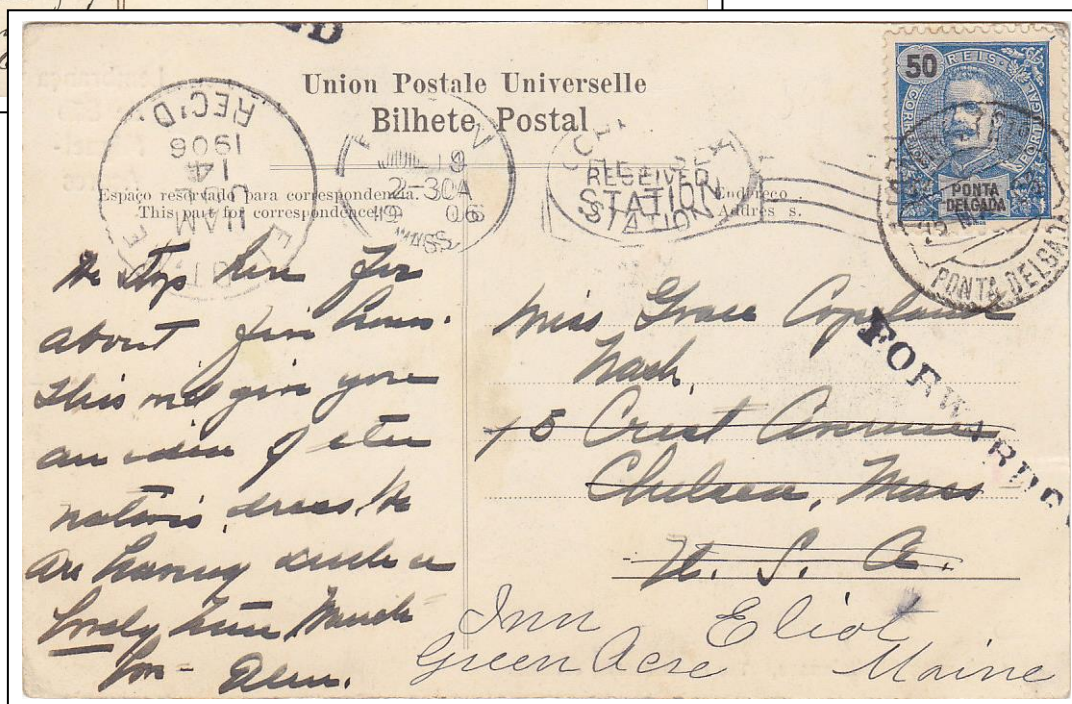 Union Postale Universelle
Bilhete Postal
Espaço reservado para correspondencia.
This part for correspondence
Endereço
Addres s.
REC'D.
1906
14
11AM
19
2-30A
06
MASS
RECEIVED
STATION
STATION
50
REIS
PORTUGAL
PONTA
DELGADA
PONTA DELGADA
FORWARDED
We stop here for
about five hours.
This will give you
an idea of the
native dress. We
are having such a
lovely time. Much
love
Miss Grace Copeland
Nash,
15 Crest Avenue
Chelsea, Mass
U. S. A.
Inn Eliot
Green Acre Maine